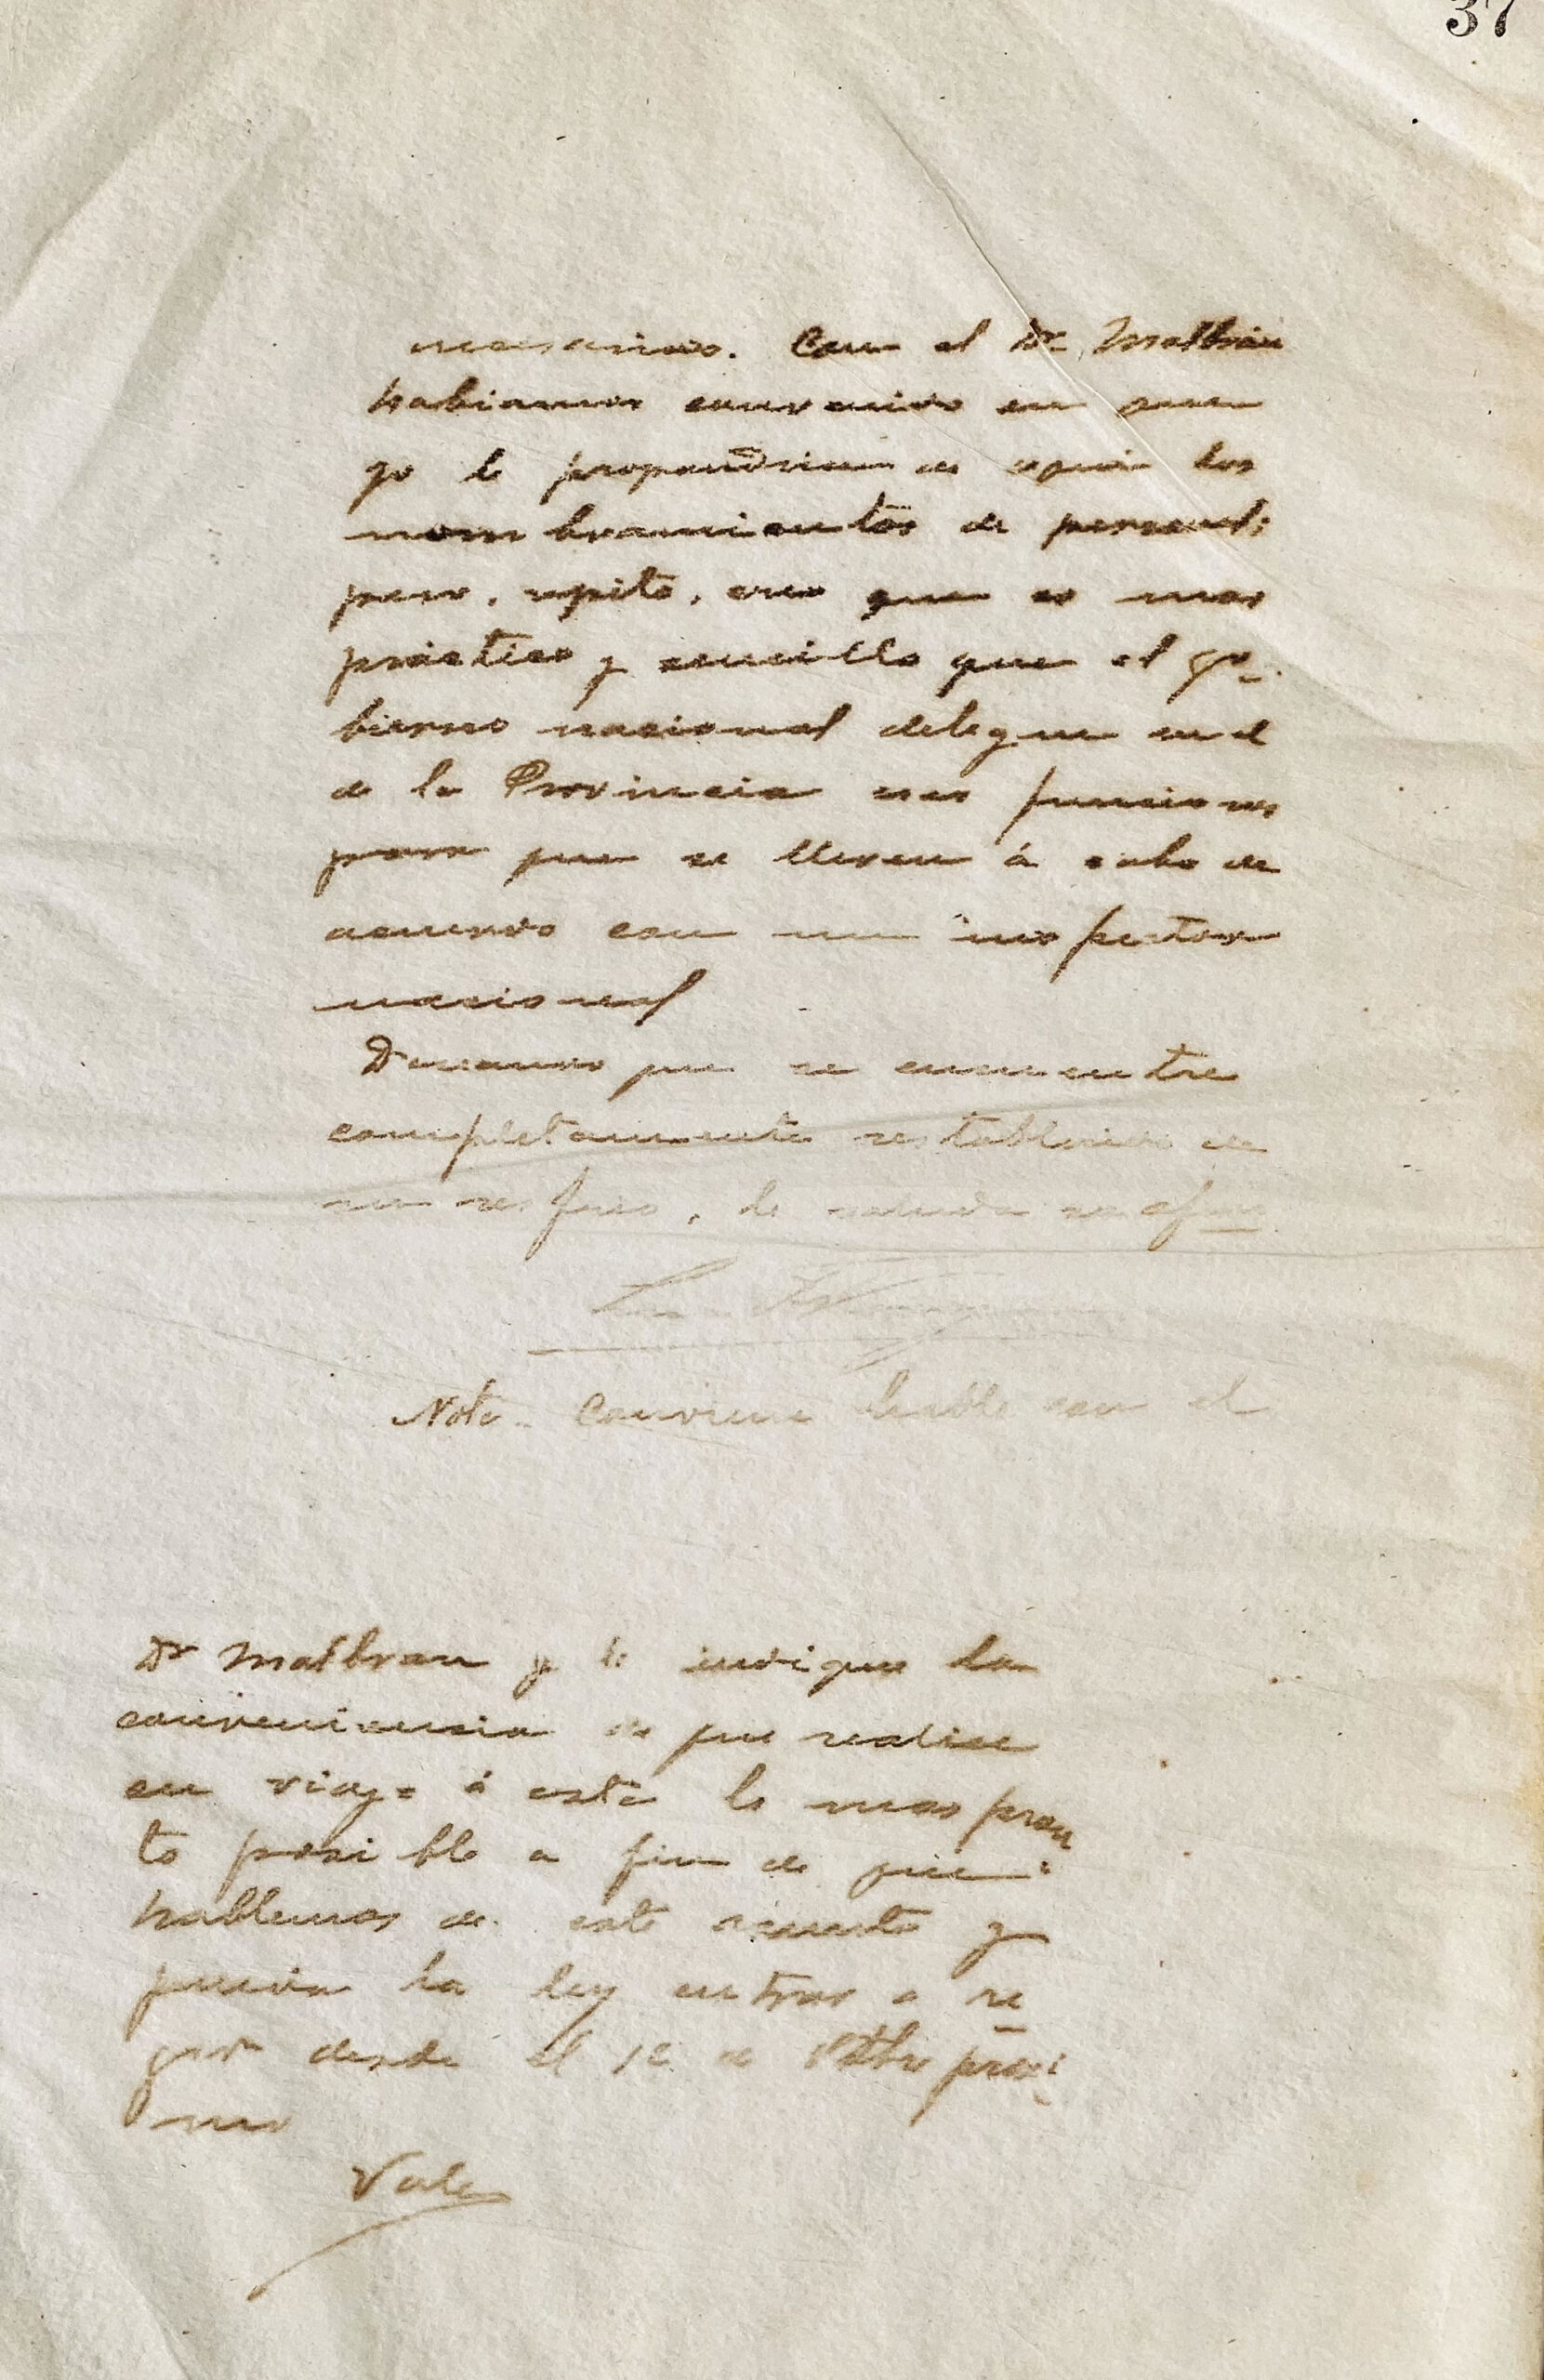 37
necesarios. Con el Dr. Malbrán
habiamos convenido en que
yo le propondria de aqui los
nombramientos de personal;
pero, repito, creo que es mas
práctico y sencillo que el go-
bierno nacional delegue en el
de la Provincia esas funciones
para que se lleven á cabo de
acuerdo con un inspector
nacional
Deseando que se encuentre
completamente restablecido de
su resfrio, le saluda su afmo
Nota. Conviene hable con el
Dr Malbran y le indique la
conveniencia de que realice
su viaje á esta lo mas pron
to posible a fin de que
hablemos de este asunto y
pueda la ley entrar a re
gir desde el 1º de 8tbre proxi
mo
Vale